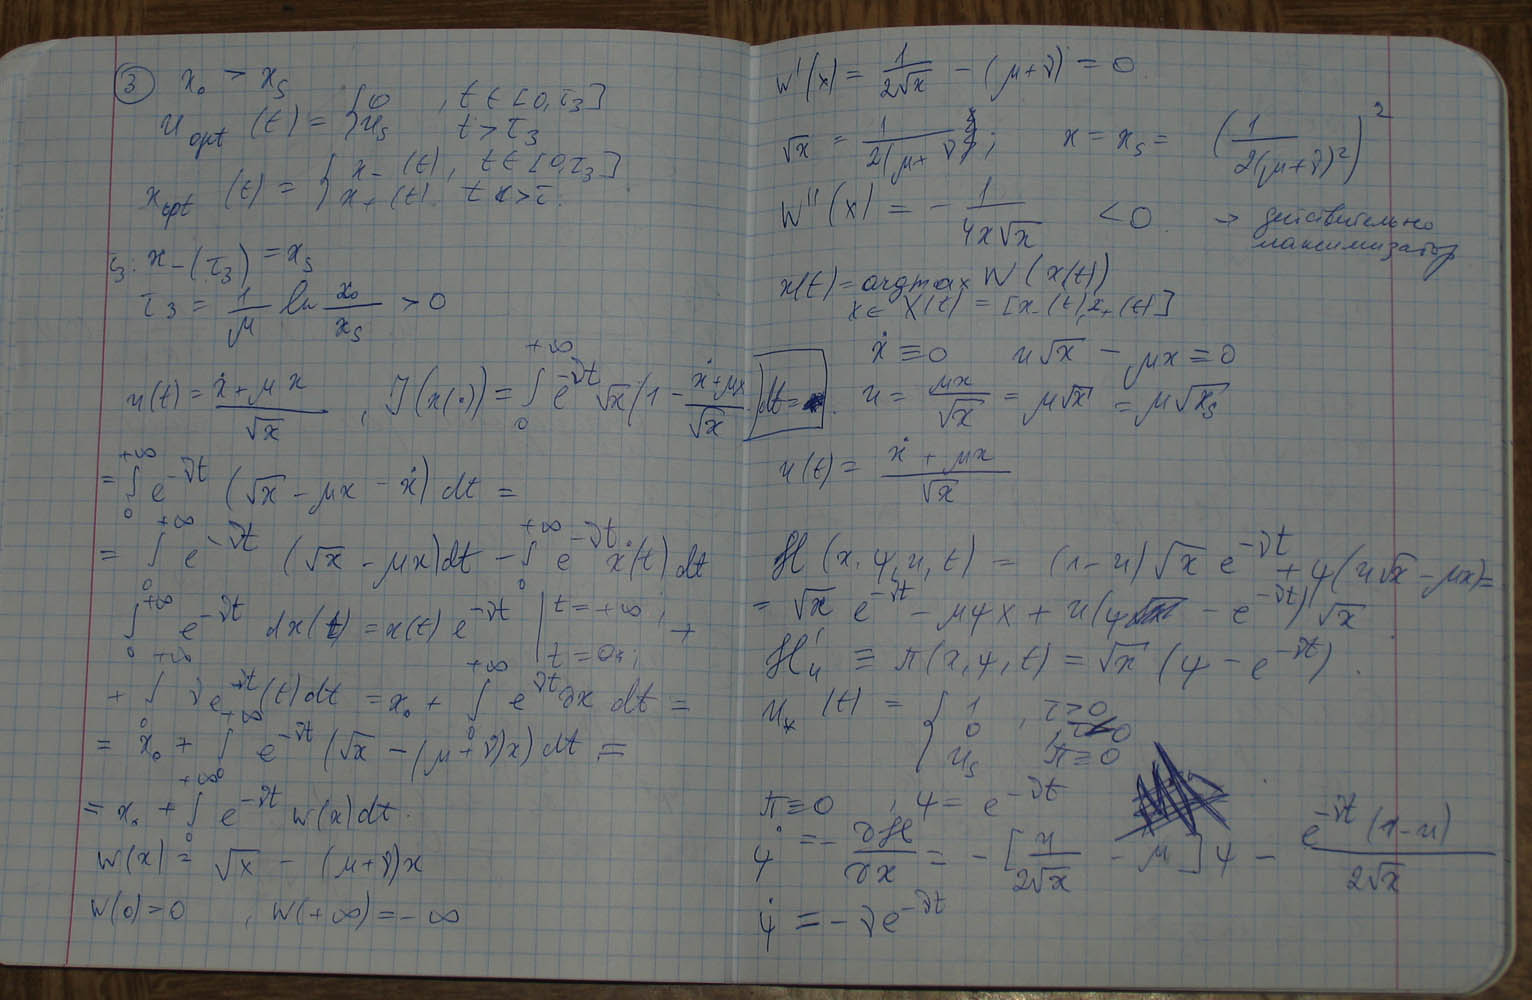 ③ x₀ > x_s
u_opt (t) = { 0 , t ∈ [0, τ₃]
u_s t > τ₃
x_opt (t) = { x₋ (t), t ∈ [0, τ₃]
x₊ (t). t > τ.
τ₃: x₋(τ₃) = x_s
τ₃ = 1/μ ln x₀/x_s > 0
u(t) = (ẋ + μx)/√x , J(x(·)) = ∫₀^{+∞} e^{-νt} √x (1 - (ẋ+μx)/√x) dt =
= ∫₀^{+∞} e^{-νt} (√x - μx - ẋ) dt =
= ∫₀^{+∞} e^{-νt} (√x - μx) dt - ∫₀^{+∞} e^{-νt} ẋ(t) dt
∫₀^{+∞} e^{-νt} dx(t) = x(t) e^{-νt} | t = +∞; t = 0; +
+ ∫₀^{+∞} ν e^{-νt} (t) dt = x₀ + ∫₀^{+∞} e^{-νt} νx dt =
= x₀ + ∫₀^{+∞} e^{-νt} (√x - (μ+ν)x) dt =
= x₀ + ∫₀^{+∞} e^{-νt} W(x) dt.
W(x) = √x - (μ+ν)x
W(0) = 0 , W(+∞) = -∞
W'(x) = 1/(2√x) - (μ+ν) = 0
√x = 1/(2(μ+ν)); x = x_s = (1/(2(μ+ν)²))²
W''(x) = - 1/(4x√x) < 0 → действительно
максимизатор
x(t) = argmax W(x(t))
x ∈ X(t) = [x₋(t), x₊(t)]
ẋ ≡ 0 u√x - μx = 0
u = μx/√x = μ√x = μ√x_s
u(t) = (ẋ + μx)/√x
ℋ (x, ψ, u, t) = (1-u)√x e^{-νt} + ψ(u√x - μx) =
= √x e^{-νt} - μψx + u(ψ - e^{-νt})√x
ℋ'_u ≡ π(x, ψ, t) = √x (ψ - e^{-νt}).
u_* (t) = { 1 , π>0
0 , π<0
u_s π≡0
π≡0 , ψ = e^{-νt}
ψ̇ = - ∂ℋ/∂x = - [u/(2√x) - μ]ψ - e^{-νt}(1-u)/(2√x)
ψ̇ = -νe^{-νt}